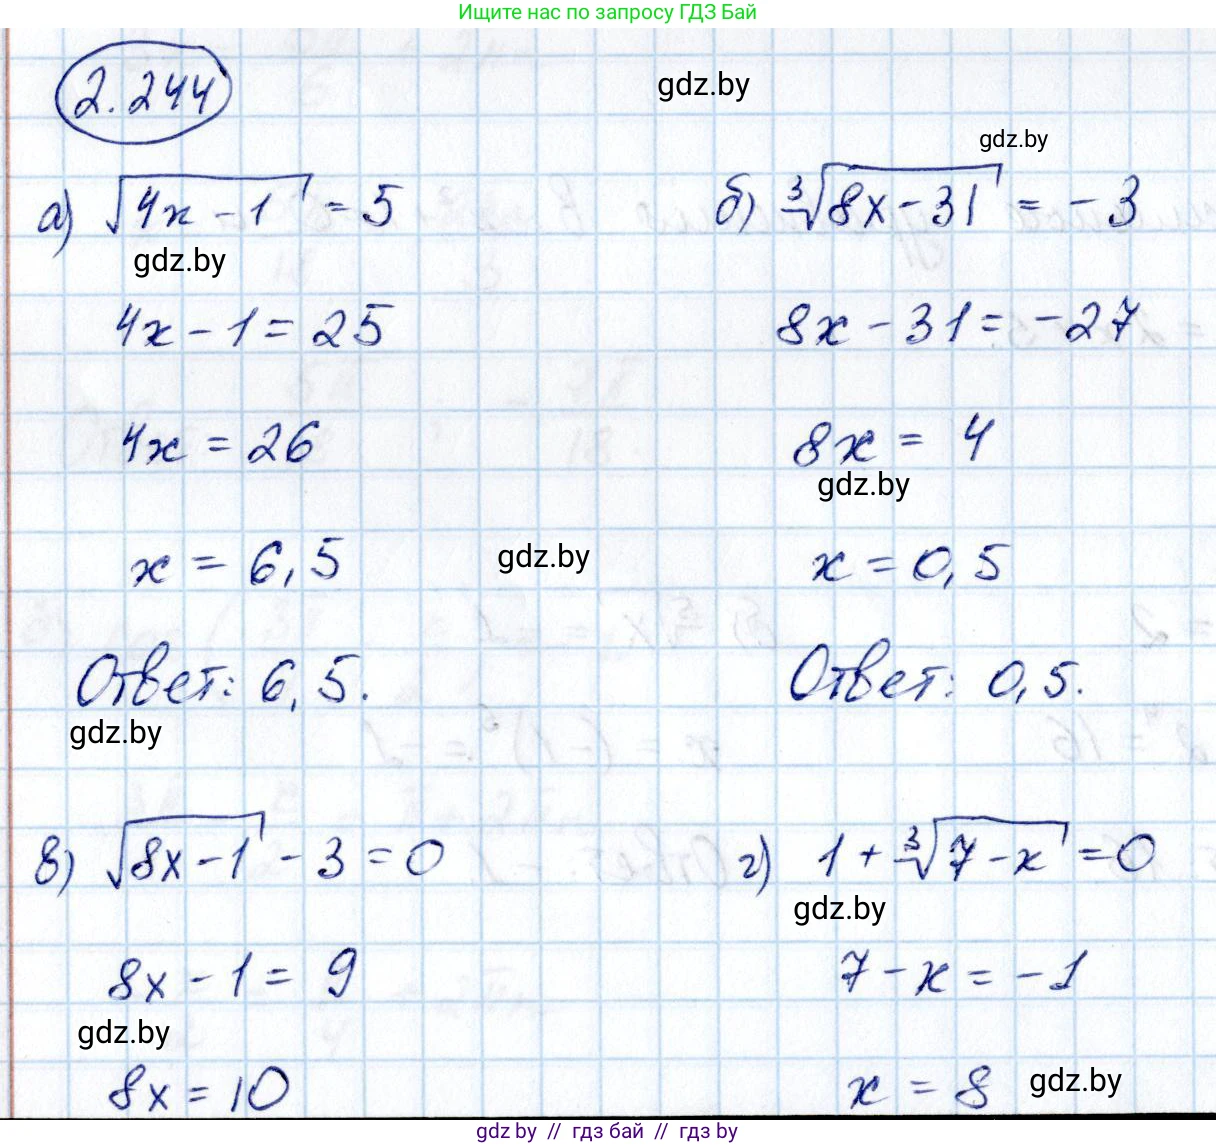 Ищите нас по запросу ГДЗ Бай
2.244
gdz.by
gdz.by
а) √4x - 1 = 5
б) ∛8x - 31 = -3
gdz.by
4x - 1 = 25
8x - 31 = -27
4x = 26
8x = 4
gdz.by
x = 6,5
gdz.by
x = 0,5
Ответ: 6,5.
Ответ: 0,5.
gdz.by
в) √8x - 1 - 3 = 0
г) 1 + ∛7 - x = 0
gdz.by
8x - 1 = 9
7 - x = -1
gdz.by
8x = 10
x = 8
gdz.by
gdz.by // гдз бай // гдз by